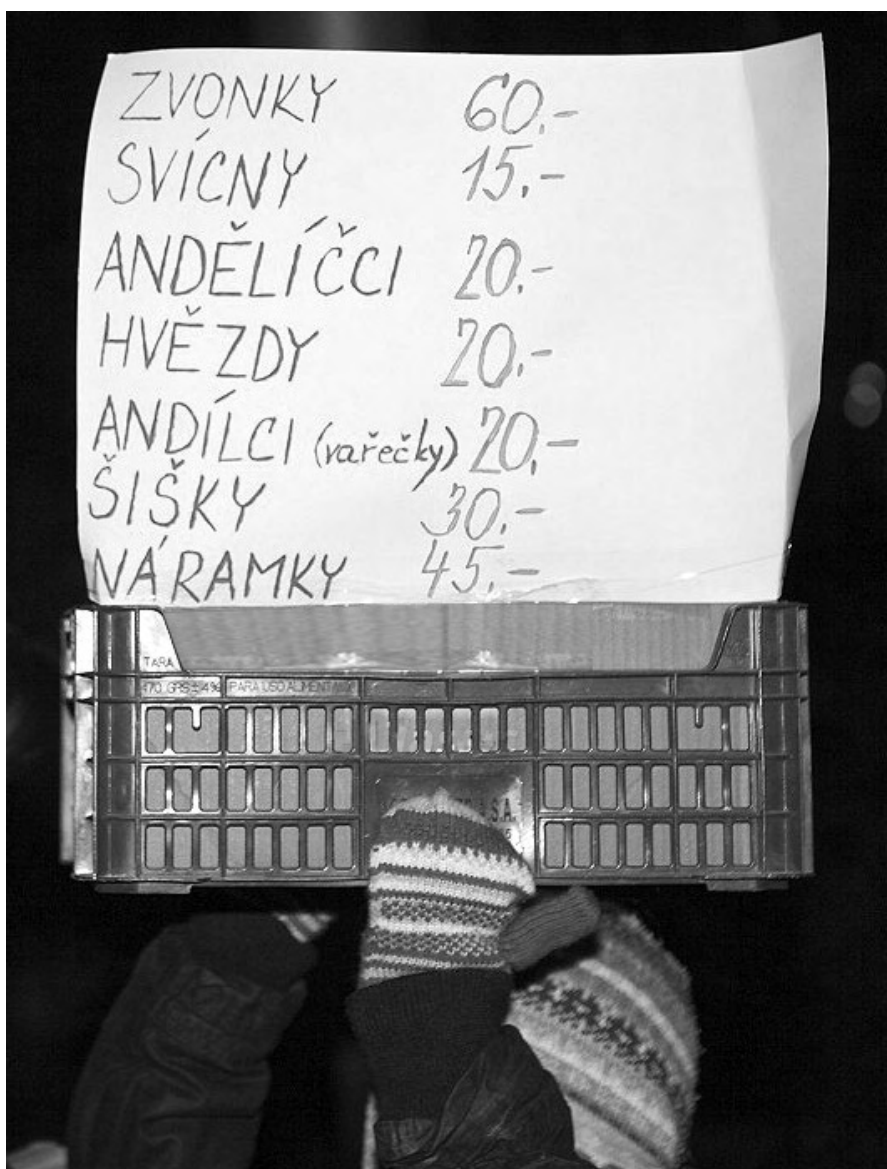 ZVONKY 60.-
SVÍCNY 15.-
ANDĚLÍČCI 20.-
HVĚZDY 20.-
ANDÍLCI (vařečky) 20.-
ŠIŠKY 30.-
NÁRAMKY 45.-
TARA
PARA USO ALIMENTARIO
S.A.